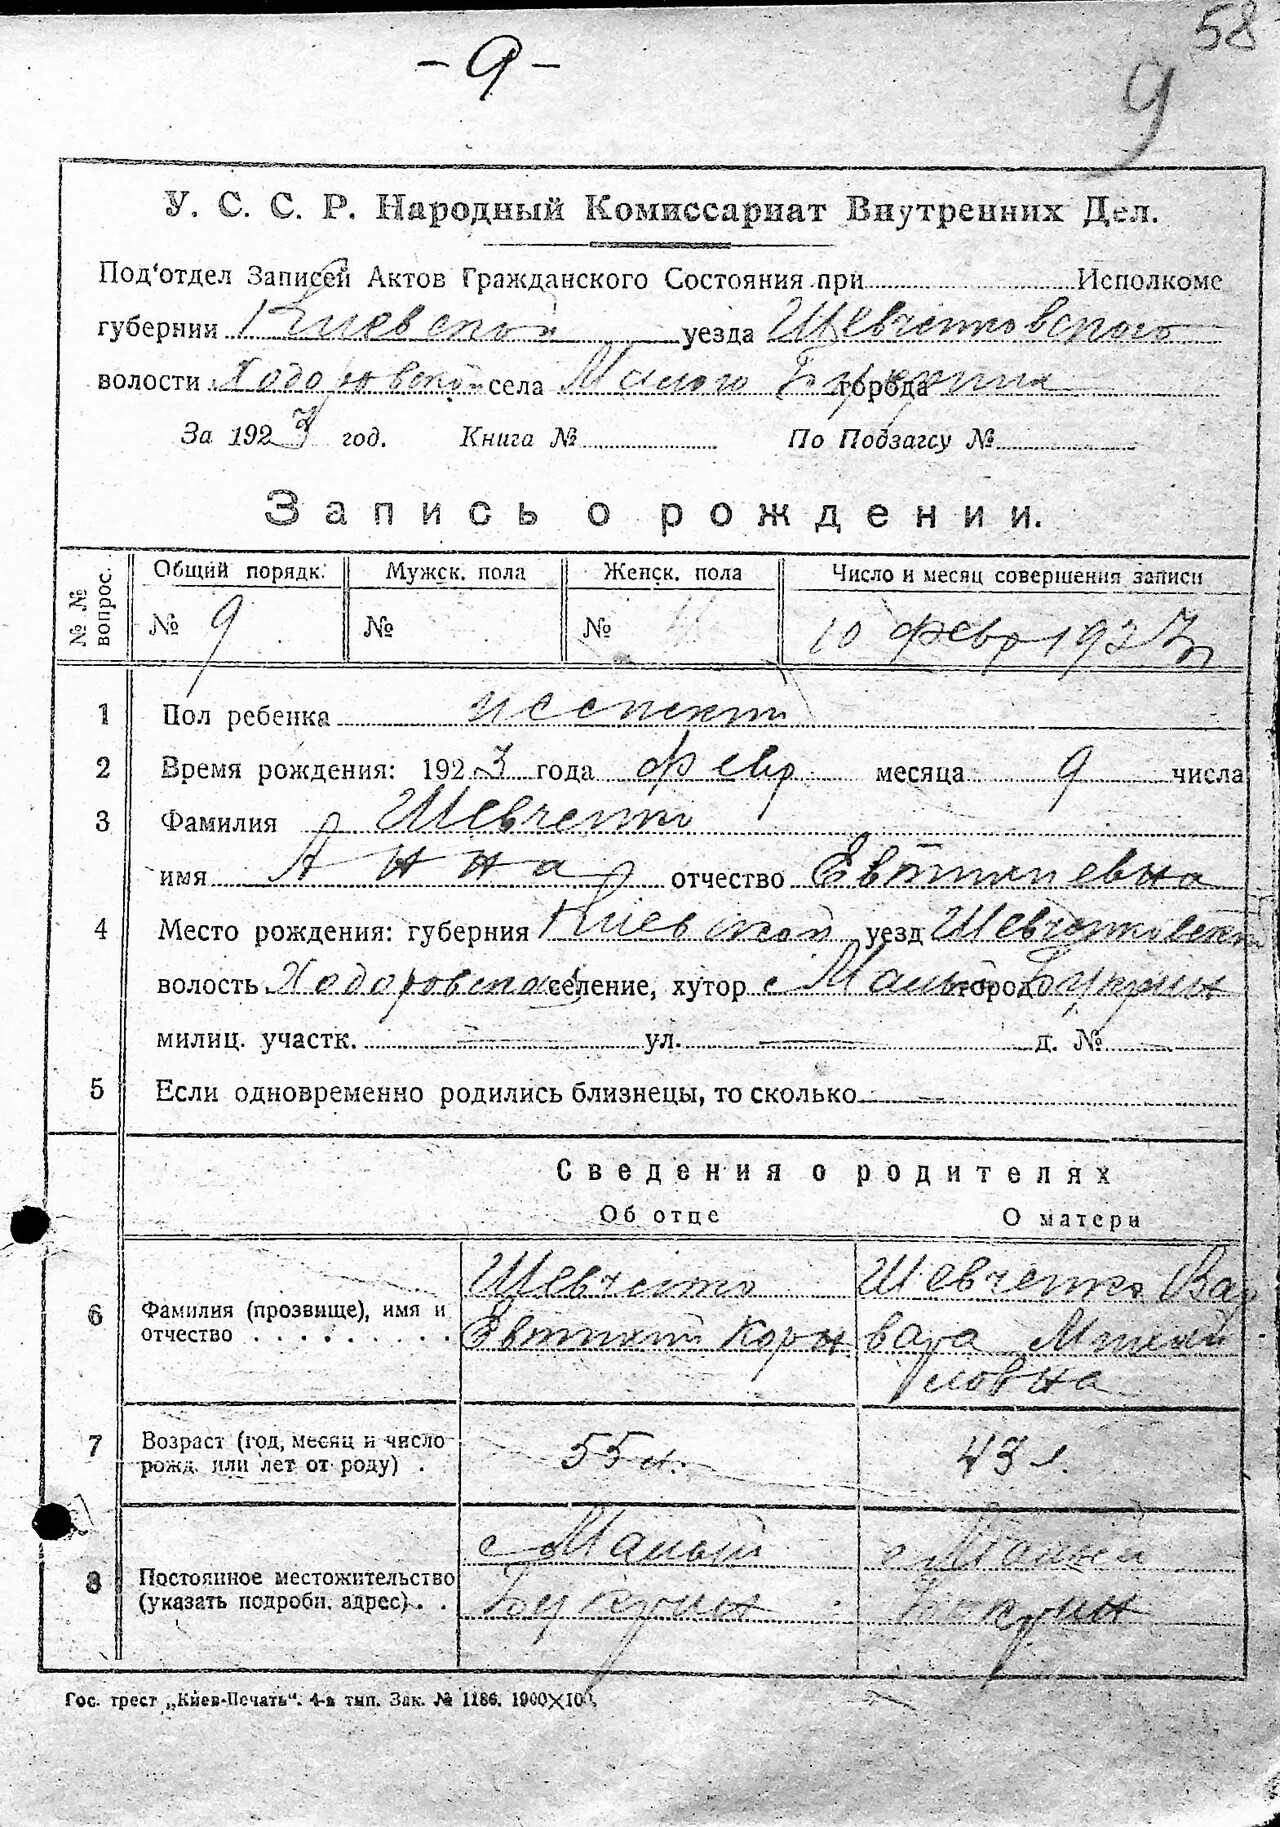 58
- 9 -
9
У. С. С. Р. Народный Комиссариат Внутренних Дел.
Под'отдел Записей Актов Гражданского Состояния при Исполкоме
губернии Киевской уезда Шевченковского
волости Ходоровской села Малого Букрина города
За 1923 год. Книга № По Подзагсу №
Запись о рождении.
№ № вопрос. Общий порядк. Мужск. пола Женск. пола Число и месяц совершения записи
№ 9 № № 10 февр 1923
1 Пол ребенка женский
2 Время рождения: 1923 года февр месяца 9 числа
3 Фамилия Шевченко
имя Анна отчество Евтихиевна
4 Место рождения: губерния Киевской уезд Шевченковский
волость Ходоровская селение, хутор с Малый город Букрин
милиц. участк. — ул. — д. №
5 Если одновременно родились близнецы, то сколько —
Сведения о родителях
Об отце О матери
6 Фамилия (прозвище), имя и отчество Шевченко Шевченко Вар
Евтихий Корн вара Михай
ловна
7 Возраст (год, месяц и число рожд. или лет от роду) 55 л. 43 л.
8 Постоянное местожительство (указать подробн. адрес) с Малый с Малый
Букрин Букрин
Гос. трест „Киев-Печать“. 4-я тип. Зак. № 1186. 1900×100.